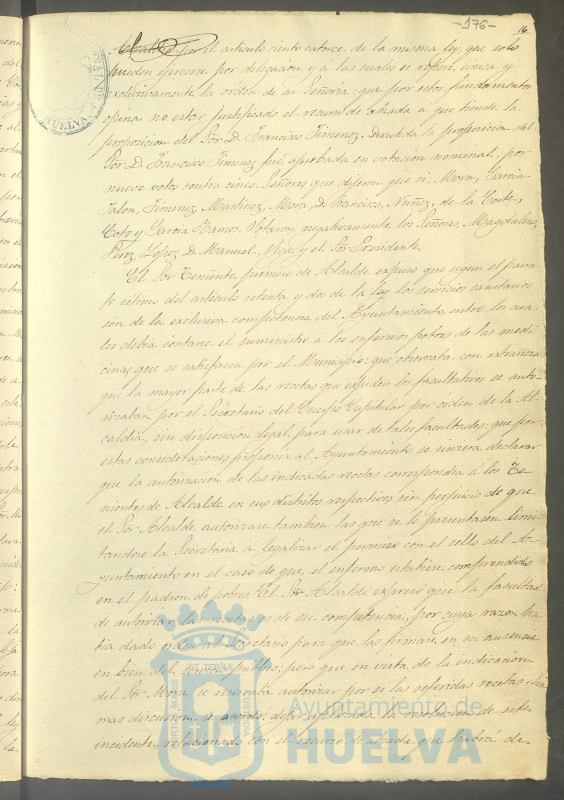 -176-
16
Alcaldía por el artículo ciento catorce de la misma ley, que solo
pueden ejercerse por delegacion y á las cuales se refiere única y
exclusivamente la orden de su Señoría: que por estos fundamentos
opina no estar justificado el recurso de alzada á que tiende la
proposicion del Sor D. Francisco Jimenez. Discutida la proposicion del
Sor D. Francisco Jimenez fué aprobada en votacion nominal, por
nueve votos contra cinco. Señores que dijeron que si: Mora, Garcia
Jalon, Jimenez, Martinez, Mora, D. Francisco, Nuñez, de la Corte,
Coto y Garcia Ramos. Votaron negativamente los Señores, Magdalena,
Perez, Lopez, D. Manuel, y el Sor Presidente.
El Sor Teniente primero de Alcalde expuso que segun el parra-
fo sétimo del artículo setenta y dos de la ley los servicios sanitarios
son de la exclusiva competencia del Ayuntamiento, entre los cua-
les debia contarse el suministro á los enfermos pobres de las medi-
cinas que se satisfacen por el Municipio: que observaba con extrañeza
que la mayor parte de las recetas que expiden los facultativos se auto-
rizaban por el Secretario del Cuerpo Capitular por orden de la Al-
caldía, sin disposicion legal, para usar de tales facultades: que por
estas consideraciones proponia al Ayuntamiento se sirviera declarar
que la autorizacion de las indicadas recetas correspondia á los Te-
nientes de Alcalde en sus distritos respectivos sin perjuicio de que
el Sor Alcalde autorizase tambien las que se le presentasen limi-
tandose la Secretaria á legalizar el permiso con el sello del A-
yuntamiento en el caso de que el enfermo estubiese comprendido
en el padron de pobres. El Sor Alcalde expresó que la facultad
de autorizar las recetas es de su competencia, por cuya razon ha-
bia dado orden al Secretario para que las firmase en su ausencia
en bien del servicio público; pero que en vista de la indicacion
del Sor Mora se reservaba autorizar por si las referidas recetas. Sin
mas discusion, se acordó, dejar aplazada la resolucion de este
incidente, relacionado con el recurso de alzada que habrá de
HUELVA
Ayuntamiento de
HUELVA